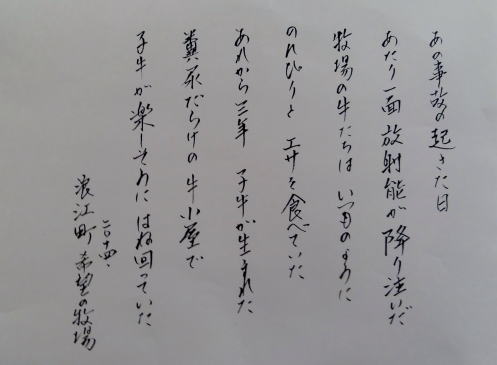 あの事故の起きた日
あたり一面放射能が降り注いだ
牧場の牛たちは いつものように
のんびりと エサを食べていた
あれから三年 子牛が生まれた
糞尿だらけの牛小屋で
子牛が楽しそうに はね回っていた
二〇十四、
浪江町 希望の牧場